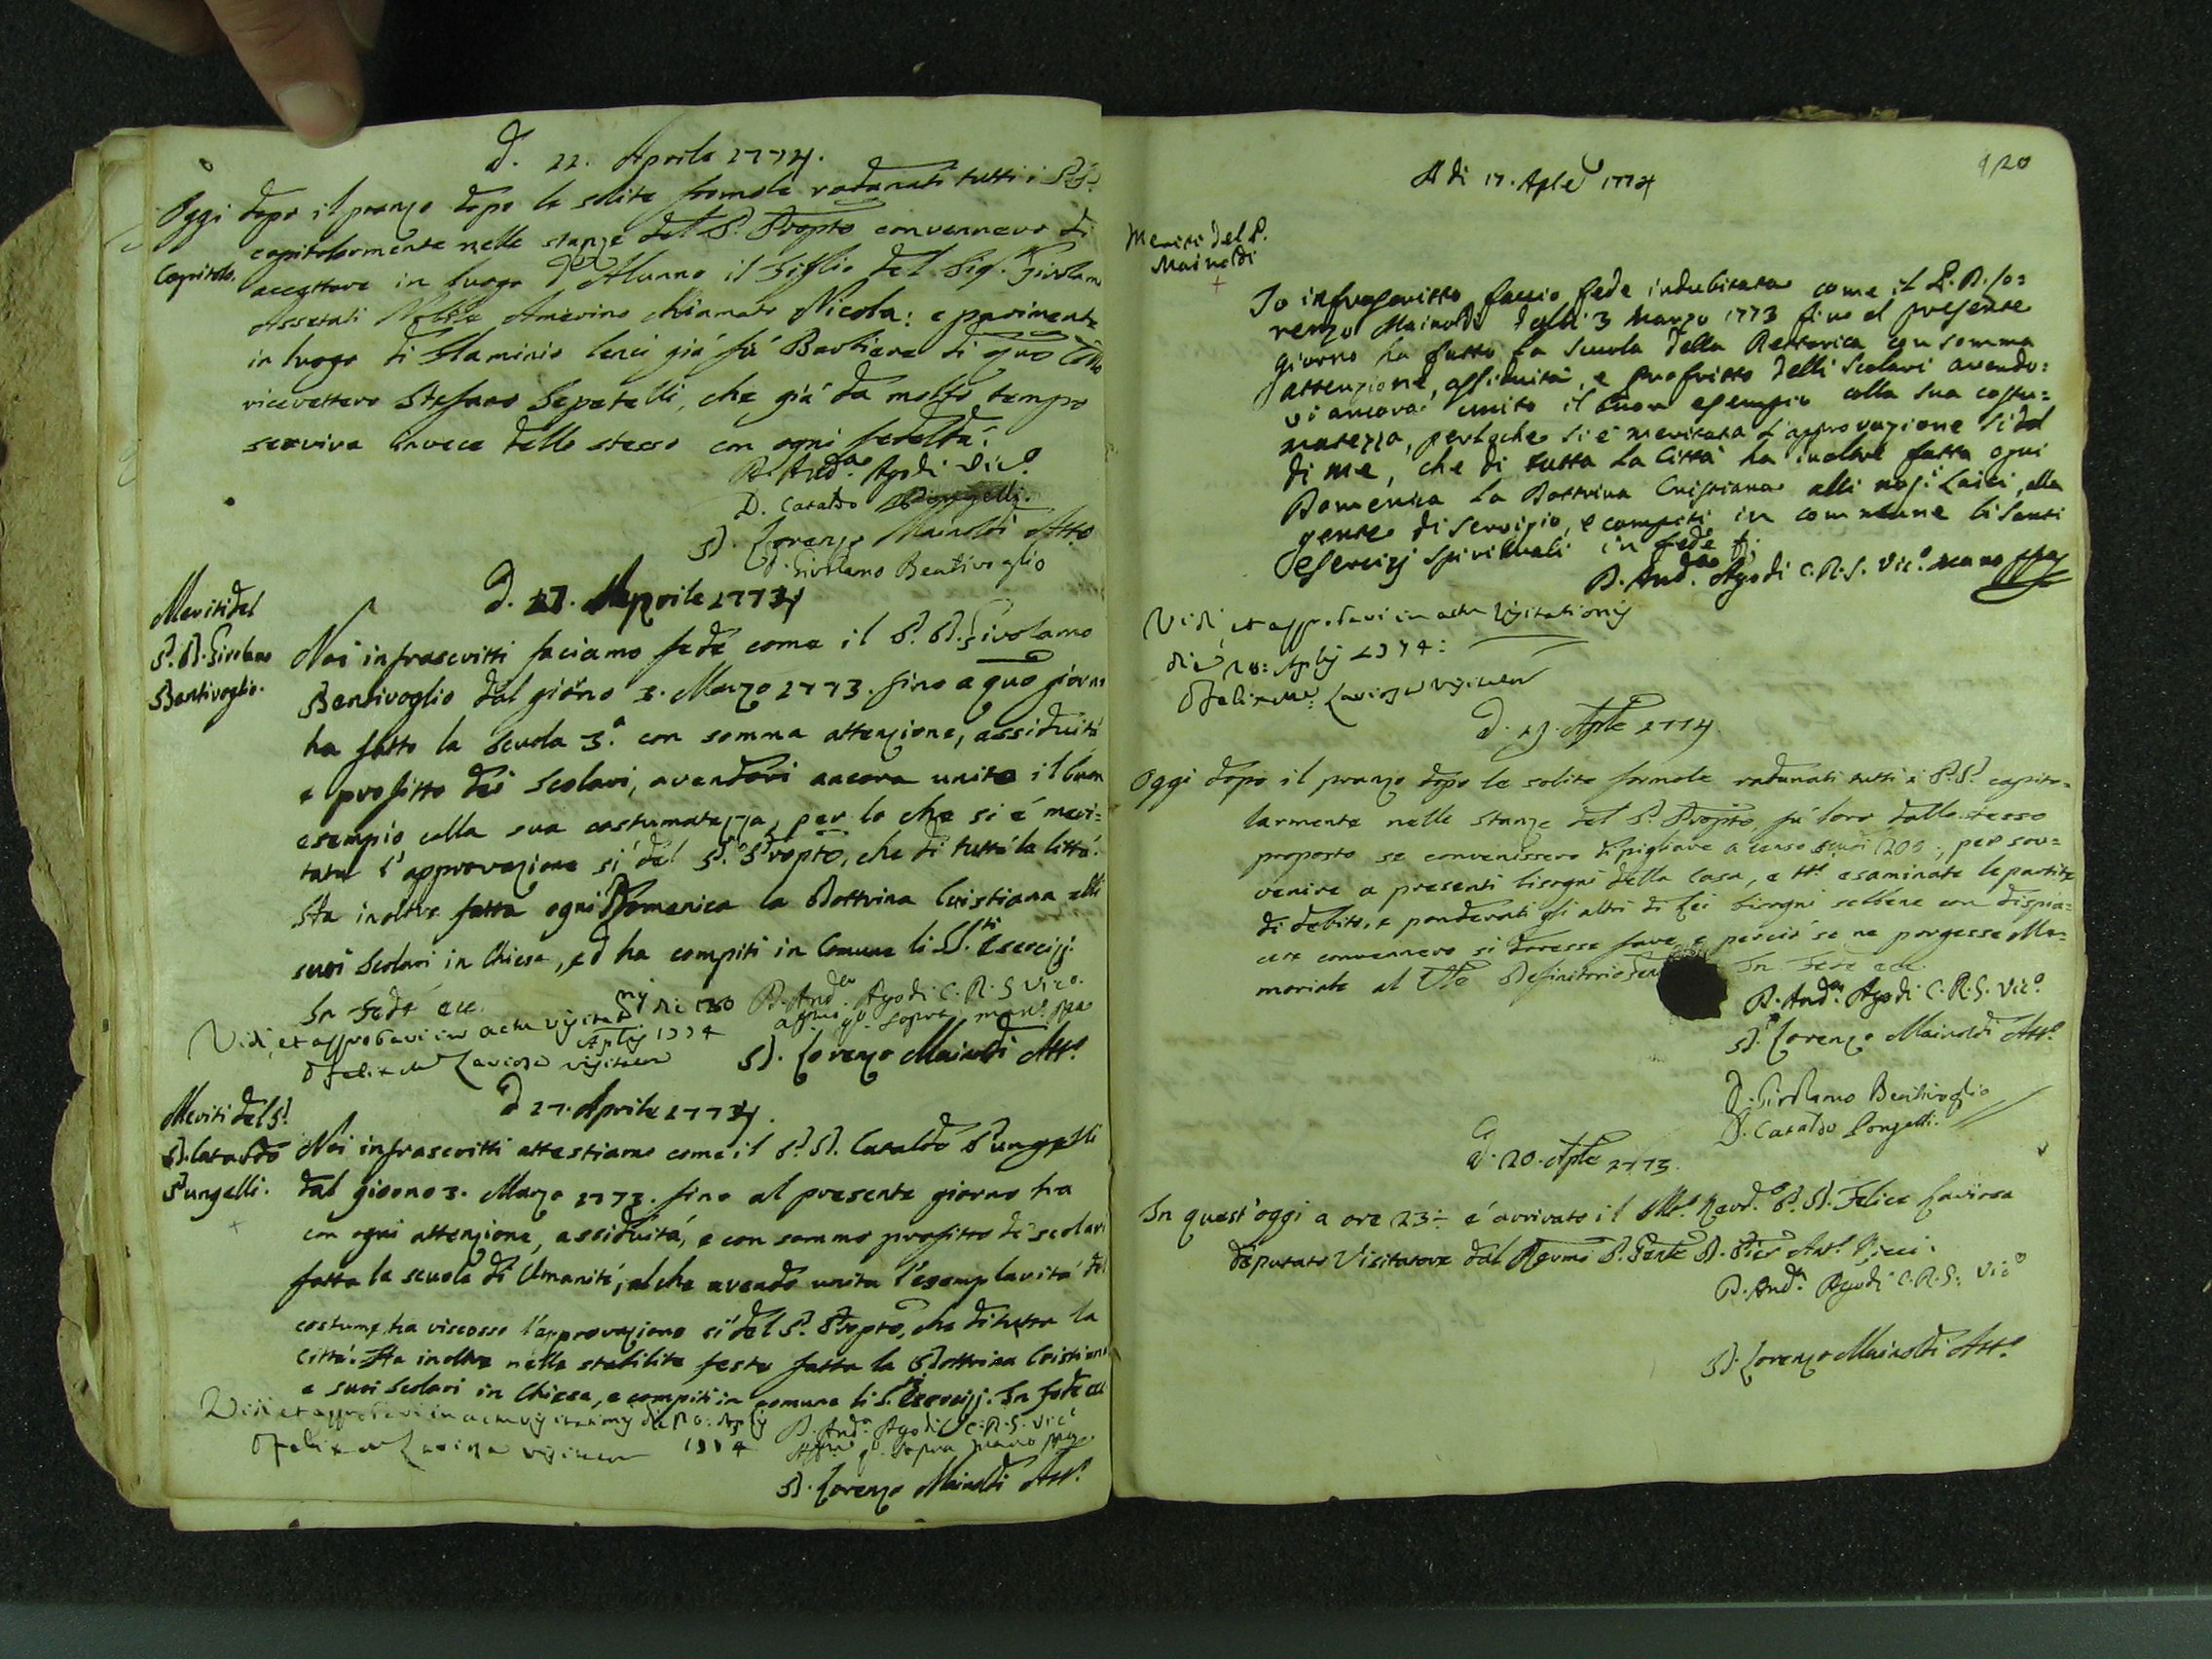 D. 22. Aprile 1774.
Oggi dopo il pranzo dopo le solite formole radunati tutti i PP.
capitolarmente nelle stanze del P. Propto convennero di
Capitolo.
accettare in luogo d' Alunno il Figlio del Sig. Girolam
Assetati Nobile Amerino chiamato Nicola: e parimente
in luogo di Flaminio Lenci già fù Barbiere di qto Collo
ricevettero Stefano Sepatelli, che già da molto tempo
serviva invece dello stesso con ogni fedeltà.
D. Anda. Agodi Vico.
D. Cataldo Pongelli.
D. Lorenzo Mainoldi Atto.
D. Girolamo Bentivoglio
D. 17. Aprile 1774
Meriti del
P. D. Girolamo
Bentivoglio.
Noi infrascritti faciamo fede come il P. D. Girolamo
Bentivoglio dal giorno 3. Marzo 1773. fino a qto giorno
ha fatto la scuola 3.a con somma attenzione, assiduità
e profitto dei Scolari, avendovi ancora unito il buon
esempio colla sua costumatezza, per lo che si é meri=
tata l'approvazione sí del P. Propto, che di tutta la Città.
Ha inoltre fatta ogni Domenica la Dottrina Cristiana alli
suoi Scolari in Chiesa, ed ha compiti in Comune li S.S.ti Esercizj.
In Fede ecc.
D. Anda. Agodi C. R. S Vico.
affmo qto sopra mano ppa
Vidi, et approbavi in actu visitatnis die 20
Aplis 1774
D Felix Ma Laviosa visitator
D. Lorenzo Mainoldi Atto.
D 17. Aprile 1774.
Meriti del P.
D. Cataldo
Pungelli.
Noi infrascritti attestiamo come il P. D. Cataldo Pungelli
dal giorno 3. Marzo 1773. fino al presente giorno ha
con ogni attenzione, assiduità, e con sommo profitto de' scolari
fatta la scuola di Umanità, al che avendo unita l'esemplarità del
costume, ha riscosso l'approvazione sí del P. Propto, che di tutta la
Città. Ha inoltre nelle stabilite feste fatta la Dottrina Cristiana
a suoi Scolari in Chiesa, e compiti in comune li S.ti Esercizj. In fede ecc
Vidi et approbavi in actu visitationis die 20: Aplis
1774
D Felix Ma Laviosa visitator
D. Anda. Agodi C. R. S. Vico
Affmo qto sopra mano ppa
D. Lorenzo Mainoldi Atto.
120
A di 17. Aple 1774
Meriti del P.
Mainoldi
Io infrascritto faccio fede indubitata come il P. D. Lo=
renzo Mainoldi dalli 3 Marzo 1773 fino al presente
giorno ha fatto la Scuola della Rettorica con somma
attenzione, assiduità, e profitto delli Scolari avendo=
vi ancora unito il buon esempio colla sua costu=
matezza, perloche si è meritata l'approvazione sí da
di me, che di tutta la Città ha inoltre fatta ogni
Domenica la Dottrina Cristiana alli nosi Laici, alla
gente di servizio, e compiti in commune li Santi
Esercizj Spirituali in fede
D. Anda. Agodi C. R. S. Vico. mano ppa
Vidi, et approbavi in actu Visitationis
die 20: Aplis 1774:
D Felix Ma: Laviosa visitator
D. 19. Aple 1774.
Oggi dopo il pranzo dopo le solite formole radunati tutti i P.P. capito=
larmente nelle stanze del P. Propto, fù loro dallo stesso
proposto se convenissero di pigliare a censo scudi 200., per sov=
venire a presenti bisogni della Casa, e tti esaminate le partite
di debito, e ponderati gli altri di lei bisogni sebbene con dispia=
cere convennero si dovesse fare, e perciò se ne porgesse Me=
moriale al Vle Definitorio In Fede ecc.
D. Anda. Agodi C. R. S. Vico
D. Lorenzo Mainoldi Atto.
D. Girolamo Bentivoglio
D. Cataldo Pongelli.
D. 20. Aple 1773.
In quest'oggi a ore 23 é arrivato il Mto. Revdo. P. D. Felice Laviosa
deputato Visitatore dal Revmo P. Gnle D. Pier Anto. Ricci.
D. Anda. Agodi C. R. S. Vico
D. Lorenzo Mainoldi Atto.